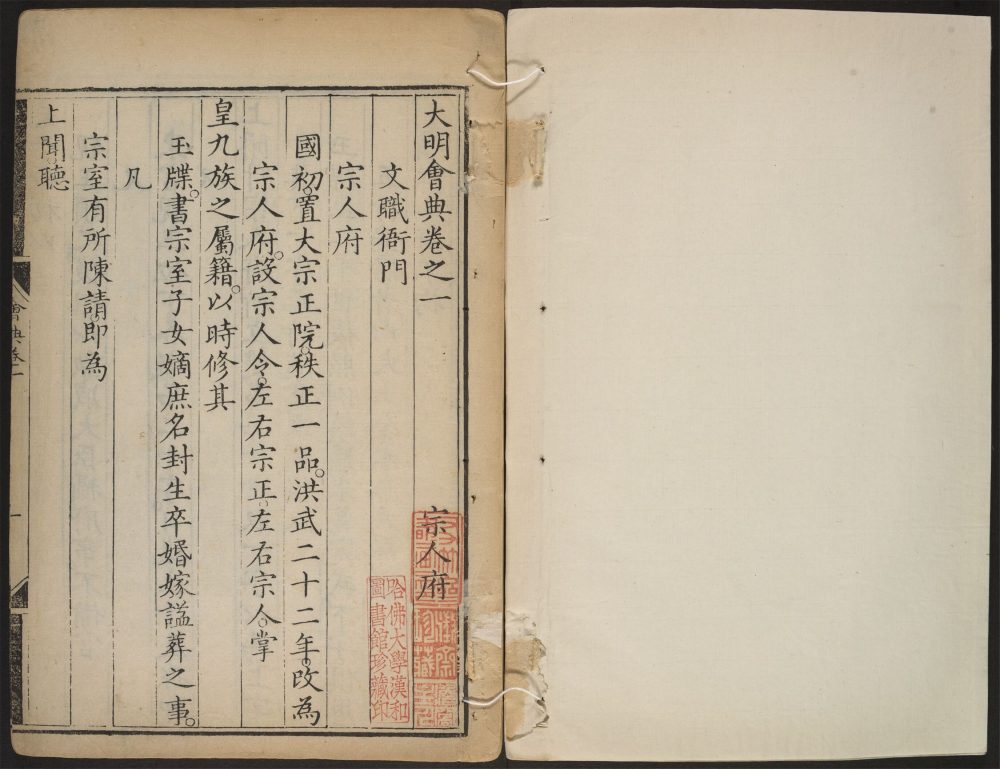 大明會典卷之一　宗人府
文職衙門
宗人府
國初。置大宗正院。秩正一品。洪武二十二年。改為
宗人府。設宗人令。左右宗正。左右宗人。掌
皇九族之屬籍。以時修其
玉牒。書宗室子女嫡庶名封生卒婚嫁謚葬之事。
凡
宗室有所陳請。即為
上聞。聽
會典卷一
一
哈佛大學漢和
圖書館珍藏印